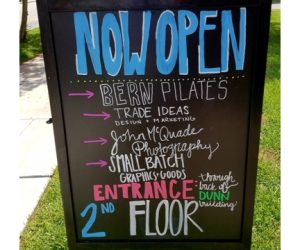 NOW OPEN
BERN PILATES
TRADE IDEAS
DESIGN + MARKETING
John McQuade
Photography
SMALL BATCH
GRAPHICS + GOODS
ENTRANCE: through
back of
DUNN
building!
2ND FLOOR